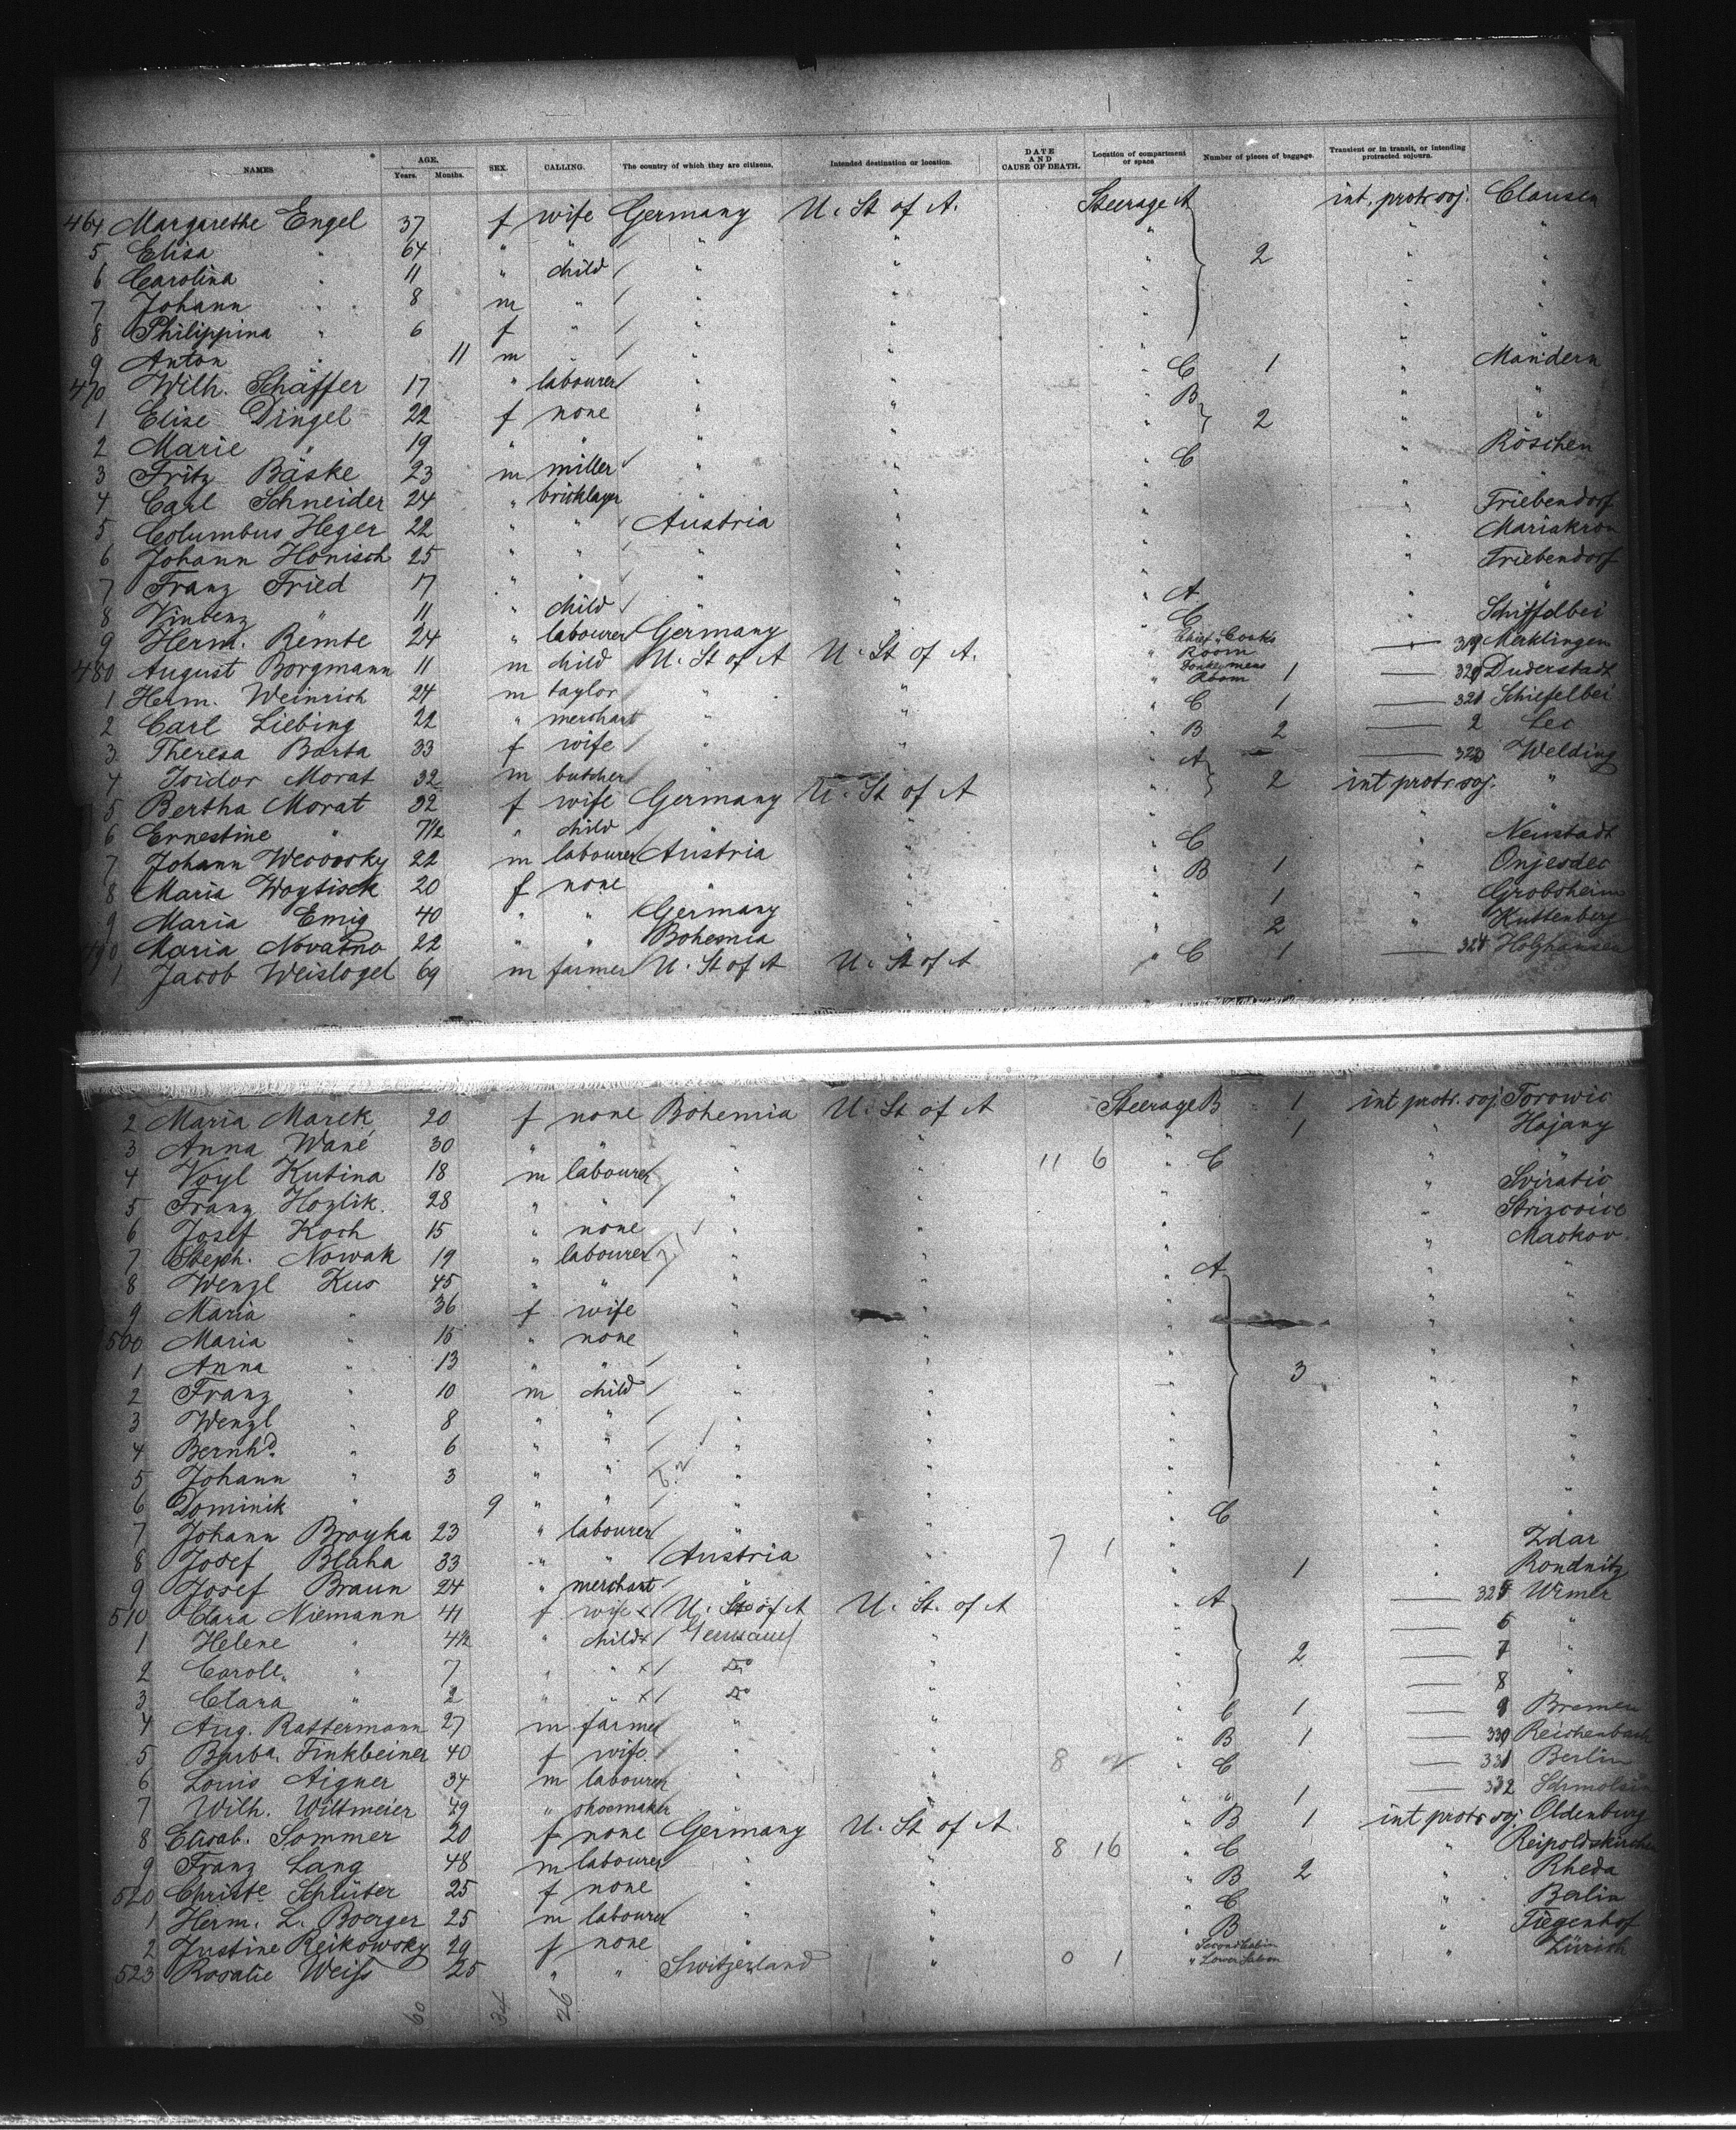 NAMES AGE. Years. Months. SEX. CALLING. The country of which they are citizens. Intended destination or location. DATE AND CAUSE OF DEATH. Location of compartment or space Number of pieces of baggage. Transient or in transit, or intending protracted sojourn.
464 Margarethe Engel 37 f wife Germany U. St of A. Steerage A int. protr. soj. Clausen
5 Elisa " 64 " " " " " 2 " "
6 Carolina " 11 " child " " " " "
7 Johann " 8 m " " " " " "
8 Philippina " 6 f " " " " " "
9 Anton " 11 m " " " " " "
470 Wilh. Schäffer 17 " labourer " " " C 1 " Mandern
1 Elise Dingel 22 f none " " " B 2 " "
2 Marie " 19 " " " " " " "
3 Fritz Bäske 23 m miller " " " C " Röschen
4 Carl Schneider 24 " bricklayer " " " " "
5 Columbus Heger 22 " " Austria " " " Friebendorf
6 Johann Honisch 25 " " " " " " Mariakron
7 Franz Fried 17 " " " " " " Friebendorf
8 Vincenz " 11 " child " " " A " "
9 Herm. Remte 24 " labourer Germany " " C " Schiffelbei
480 August Borgmann 11 m child U. St of A U. St of A. " Chief Cooks Room 319 Merklingen
1 Herm. Weinrich 24 m taylor " " " Donkeymens Room 1 320 Duderstadt
2 Carl Liebing 22 " merchant " " " C 1 321 Schiefelbei
3 Theresa Barta 33 f wife " " " B 2 2 Lec
4 Isidor Morat 32 m butcher " " " A 323 Welding
5 Bertha Morat 32 f wife Germany U. St of A " 2 int protr. soj. "
6 Ernestine " 7 1/2 " child " " " " "
7 Johann 22 m labourer Austria " " C " Neustadt
8 Maria Woytisek 20 f none " " " B 1 " Onjesdec
9 Maria Emig 40 " " Germany " " 1 " Grobsheim
490 Maria Novatno 22 " " Bohemia " " 2 " Kuttenberg
1 Jacob Weislogel 69 m farmer U. St of A U. St of A " C 1 324 Holzhausen
2 Maria Marek 20 f none Bohemia U. St of A Steerage B 1 int protr. soj. Torowic
3 Anna Wané 30 " " " " " 1 " Hajany
4 Voyl Kutina 18 m labourer " " 11 6 " C " "
5 Franz Hozlik. 28 " " " " " " Sviratic
6 Josef Koch 15 " none " " " " Strizovice
7 Steph. Nowak 19 " labourer " " " " Mackov.
8 Wenzl Kus 45 " " " " " A " "
9 Maria " 36 f wife " " " " "
500 Maria " 15 " none " " " " "
1 Anna " 13 " " " " " 3 " "
2 Franz " 10 m child " " " " "
3 Wenzl " 8 " " " " " " "
4 Bernhd. " 6 " " " " " " "
5 Johann " 3 " " " " " " "
6 Dominik " 9 " " " " " " "
7 Johann Broyka 23 " labourer " " " C " "
8 Josef Blaha 33 " " Austria " 7 1 " " Zdar
9 Josef Braun 24 " merchant " " " 1 " Rondnitz
510 Clara Niemann 41 f wife U. St of A U. St. of A " A 325 Wimer
1 Helene " 4 1/2 " child Germany " " 6 "
2 Caroll. " 7 " " Do " " 2 7 "
3 Clara " 2 " " Do " " 8 "
4 Aug. Rattermann 27 m farmer " " " C 1 9 Bremen
5 Barba. Finkbeiner 40 f wife " " " B 1 330 Reichenbach
6 Louis Aigner 34 m labourer " " 8 " C 331 Berlin
7 Wilh. Wiltmeier 49 " shoemaker " " " " 1 332 Schmolsin
8 Elisab. Sommer 20 f none Germany U. St of A. " B 1 int protr soj. Oldenburg
9 Franz Lang 48 m labourer " " 8 16 " C " Reipoldskirchen
520 Christe Schlüter 25 f none " " " B 2 " Rheda
1 Herm. L. Boerger 25 m labourer " " " C " Berlin
2 Justine Reikowsky 29 f none " " " B " Tiegenhof
523 Rosalie Weiss 25 " " Switzerland " 0 1 Second Cabin " Lower Saloon Zürich
60 34 26